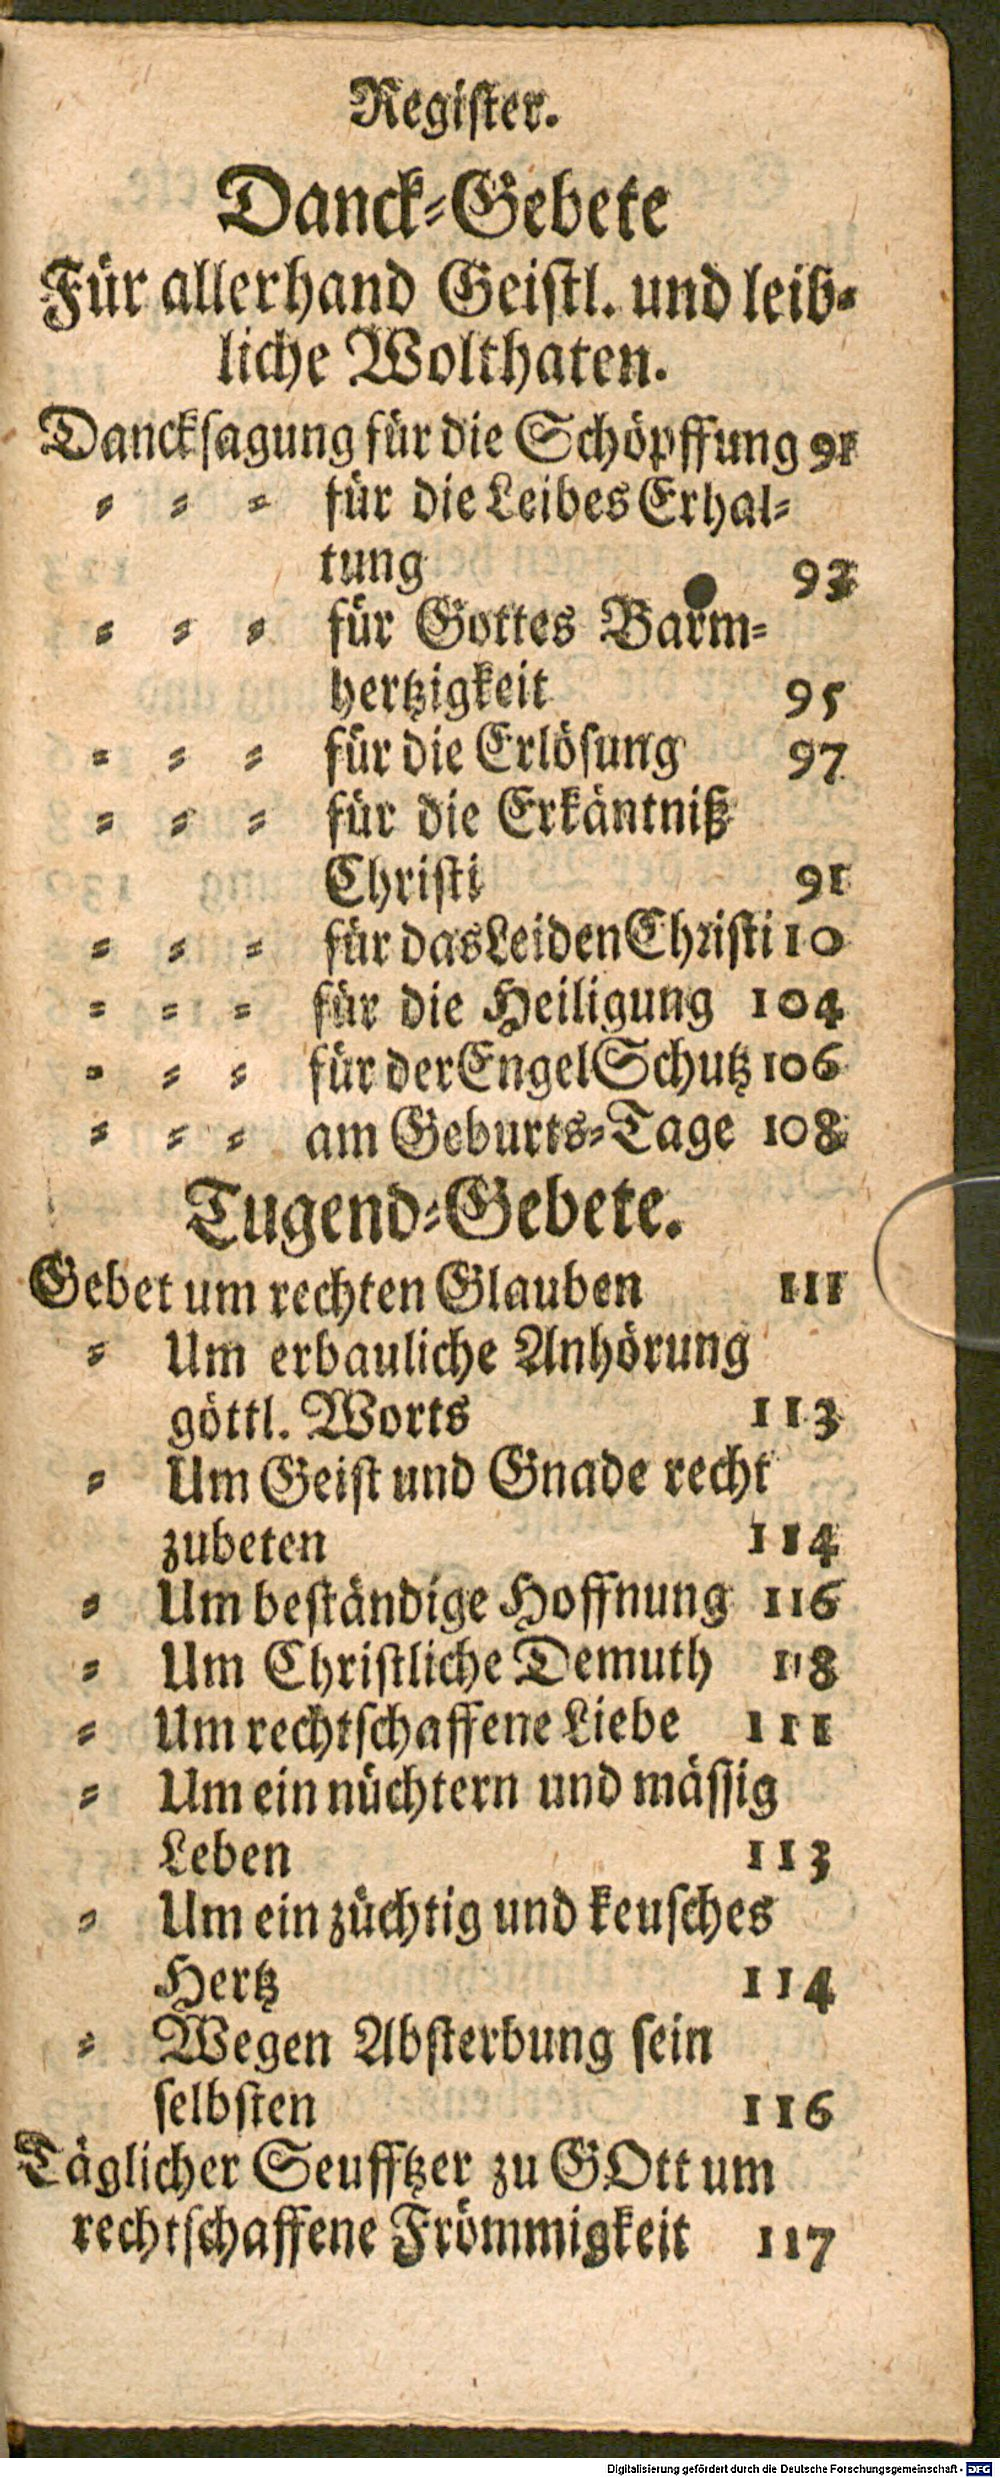 Register.
Danck⸗Gebete
Für allerhand Geiſtl. und leib⸗
liche Wolthaten.
Danckſagung für die Schöpffung 91
⸗ ⸗ ⸗ für die Leibes Erhal⸗
tung 93
⸗ ⸗ ⸗ für Gottes Barm⸗
hertzigkeit 95
⸗ ⸗ ⸗ für die Erlöſung 97
⸗ ⸗ ⸗ für die Erkäntniß
Chriſti 91
⸗ ⸗ ⸗ für das Leiden Chriſti 10
⸗ ⸗ ⸗ für die Heiligung 104
⸗ ⸗ ⸗ für der Engel Schutz 106
⸗ ⸗ ⸗ am Geburts⸗Tage 108
Tugend⸗Gebete.
Gebet um rechten Glauben 111
⸗ Um erbauliche Anhörung
göttl. Worts 113
⸗ Um Geiſt und Gnade recht
zubeten 114
⸗ Um beſtändige Hoffnung 116
⸗ Um Chriſtliche Demuth 118
⸗ Um rechtſchaffene Liebe 111
⸗ Um ein nüchtern und mäſſig
Leben 113
⸗ Um ein züchtig und keuſches
Hertz 114
⸗ Wegen Abſterbung ſein
ſelbſten 116
Täglicher Seufftzer zu GOtt um
rechtſchaffene Frömmigkeit 117
Digitalisierung gefördert durch die Deutsche Forschungsgemeinschaft - DFG